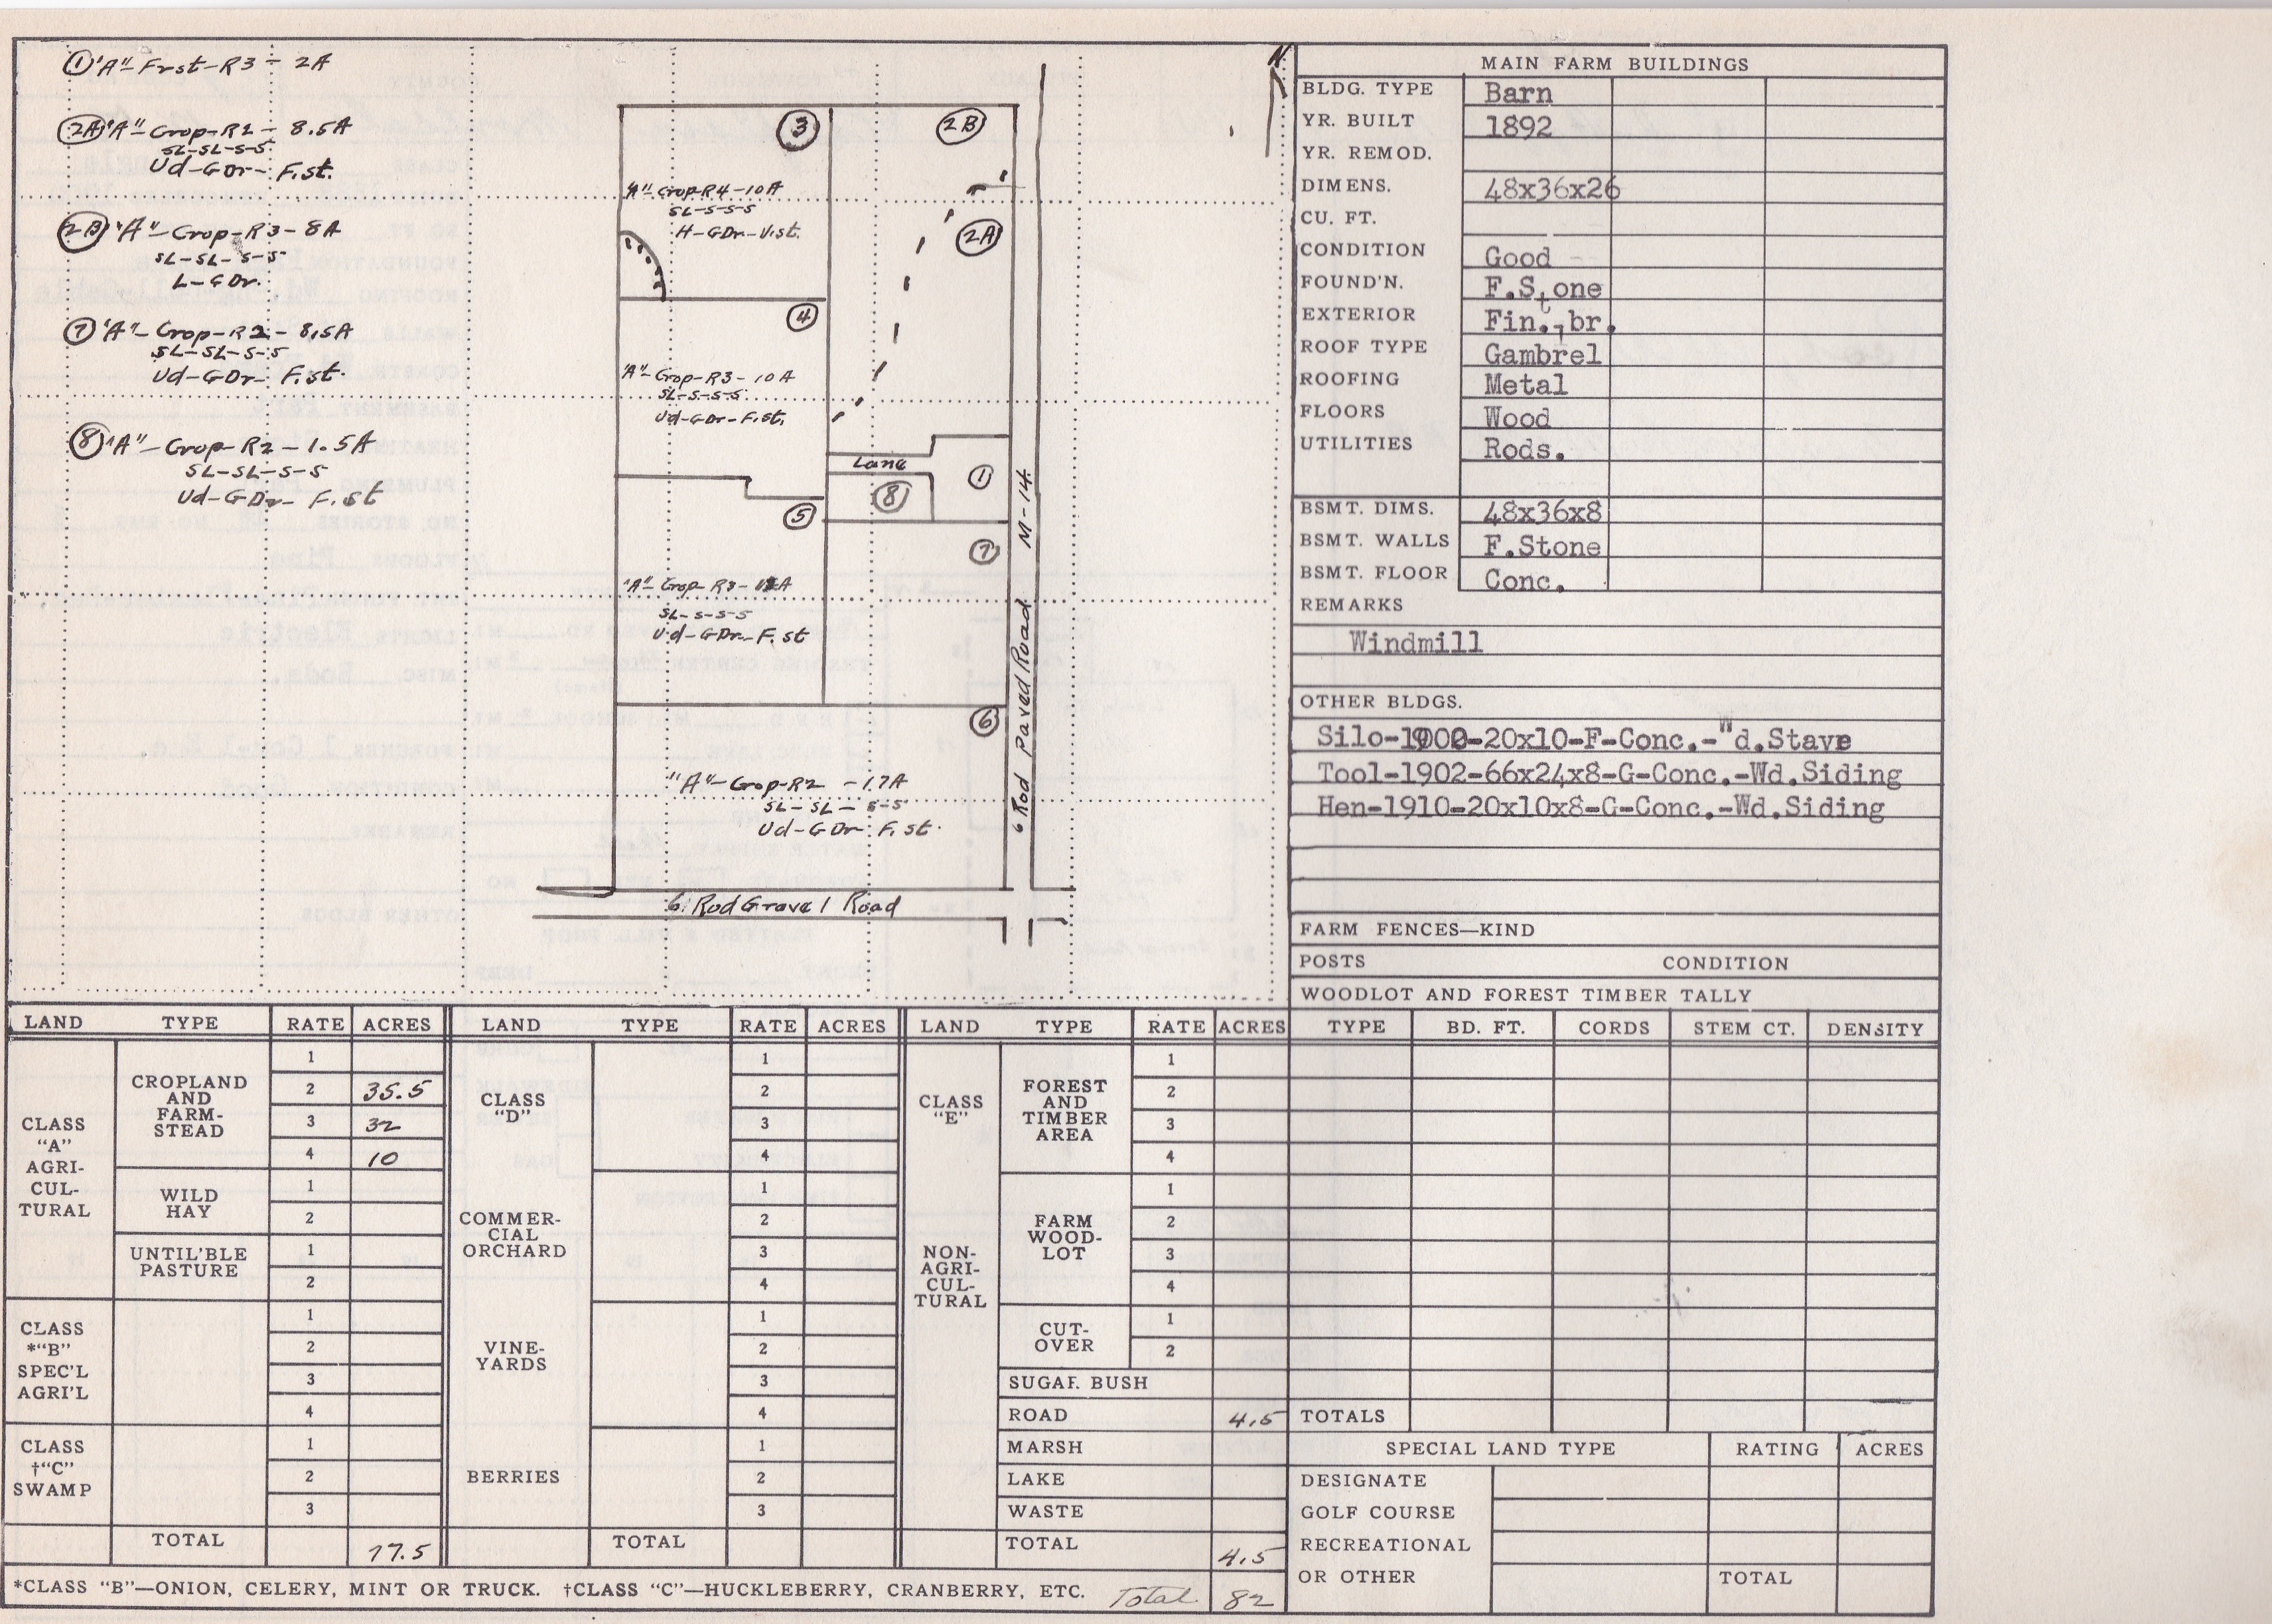 ① "A"-Frst-R3-2A
2A "A"-Crop-R2-8.5A
SL-SL-S-S
Ud-GDr-F.st.
2B "A"-Crop-R3-8A
SL-SL-S-S
L-GDr.
⑦ "A"-Crop-R2-8.5A
SL-SL-S-S
Ud-GDr-F.st.
⑧ "A"-Crop-R2-1.5A
SL-SL-S-S
Ud-GDr-F.st
N
③
2B
"A"-Crop-R4-10A
SL-S-S-S
H-GDr-V.st.
2A
④
"A"-Crop-R3-10A
SL-S-S-S
Ud-GDr-F.st.
Lane
①
⑧
⑤
⑦
"A"-Crop-R3-12A
SL-S-S-S
Ud-GDr-F.st
⑥
"A"-Crop-R2-17A
SL-SL-S-S
Ud-GDr-F.st.
6 Rod Paved Road M-14
6 Rod Gravel Road
MAIN FARM BUILDINGS
BLDG. TYPE Barn
YR. BUILT 1892
YR. REMOD.
DIMENS. 48x36x26
CU. FT.
CONDITION Good
FOUND'N. F.Stone
EXTERIOR Fin.-br.
ROOF TYPE Gambrel
ROOFING Metal
FLOORS Wood
UTILITIES Rods.
BSMT. DIMS. 48x36x8
BSMT. WALLS F.Stone
BSMT. FLOOR Conc.
REMARKS
Windmill
OTHER BLDGS.
Silo-1900-20x10-F-Conc.-Wd.Stave
Tool-1902-66x24x8-G-Conc.-Wd.Siding
Hen-1910-20x10x8-G-Conc.-Wd.Siding
FARM FENCES—KIND
POSTS CONDITION
WOODLOT AND FOREST TIMBER TALLY
TYPE BD. FT. CORDS STEM CT. DENSITY
TOTALS
SPECIAL LAND TYPE RATING ACRES
DESIGNATE
GOLF COURSE
RECREATIONAL
OR OTHER TOTAL
LAND TYPE RATE ACRES
CLASS
"A"
AGRI-
CUL-
TURAL
CROPLAND
AND
FARM-
STEAD
1
2 35.5
3 32
4 10
WILD
HAY
1
2
UNTIL'BLE
PASTURE
1
2
CLASS
*"B"
SPEC'L
AGRI'L
1
2
3
4
CLASS
†"C"
SWAMP
1
2
3
TOTAL 77.5
LAND TYPE RATE ACRES
CLASS
"D"
1
2
3
4
COMMER-
CIAL
ORCHARD
1
2
3
4
VINE-
YARDS
1
2
3
4
BERRIES
1
2
3
TOTAL
LAND TYPE RATE ACRES
CLASS
"E"
NON-
AGRI-
CUL-
TURAL
FOREST
AND
TIMBER
AREA
1
2
3
4
FARM
WOOD-
LOT
1
2
3
4
CUT-
OVER
1
2
SUGAR BUSH
ROAD 4.5
MARSH
LAKE
WASTE
TOTAL 4.5
*CLASS "B"—ONION, CELERY, MINT OR TRUCK. †CLASS "C"—HUCKLEBERRY, CRANBERRY, ETC. Total 82